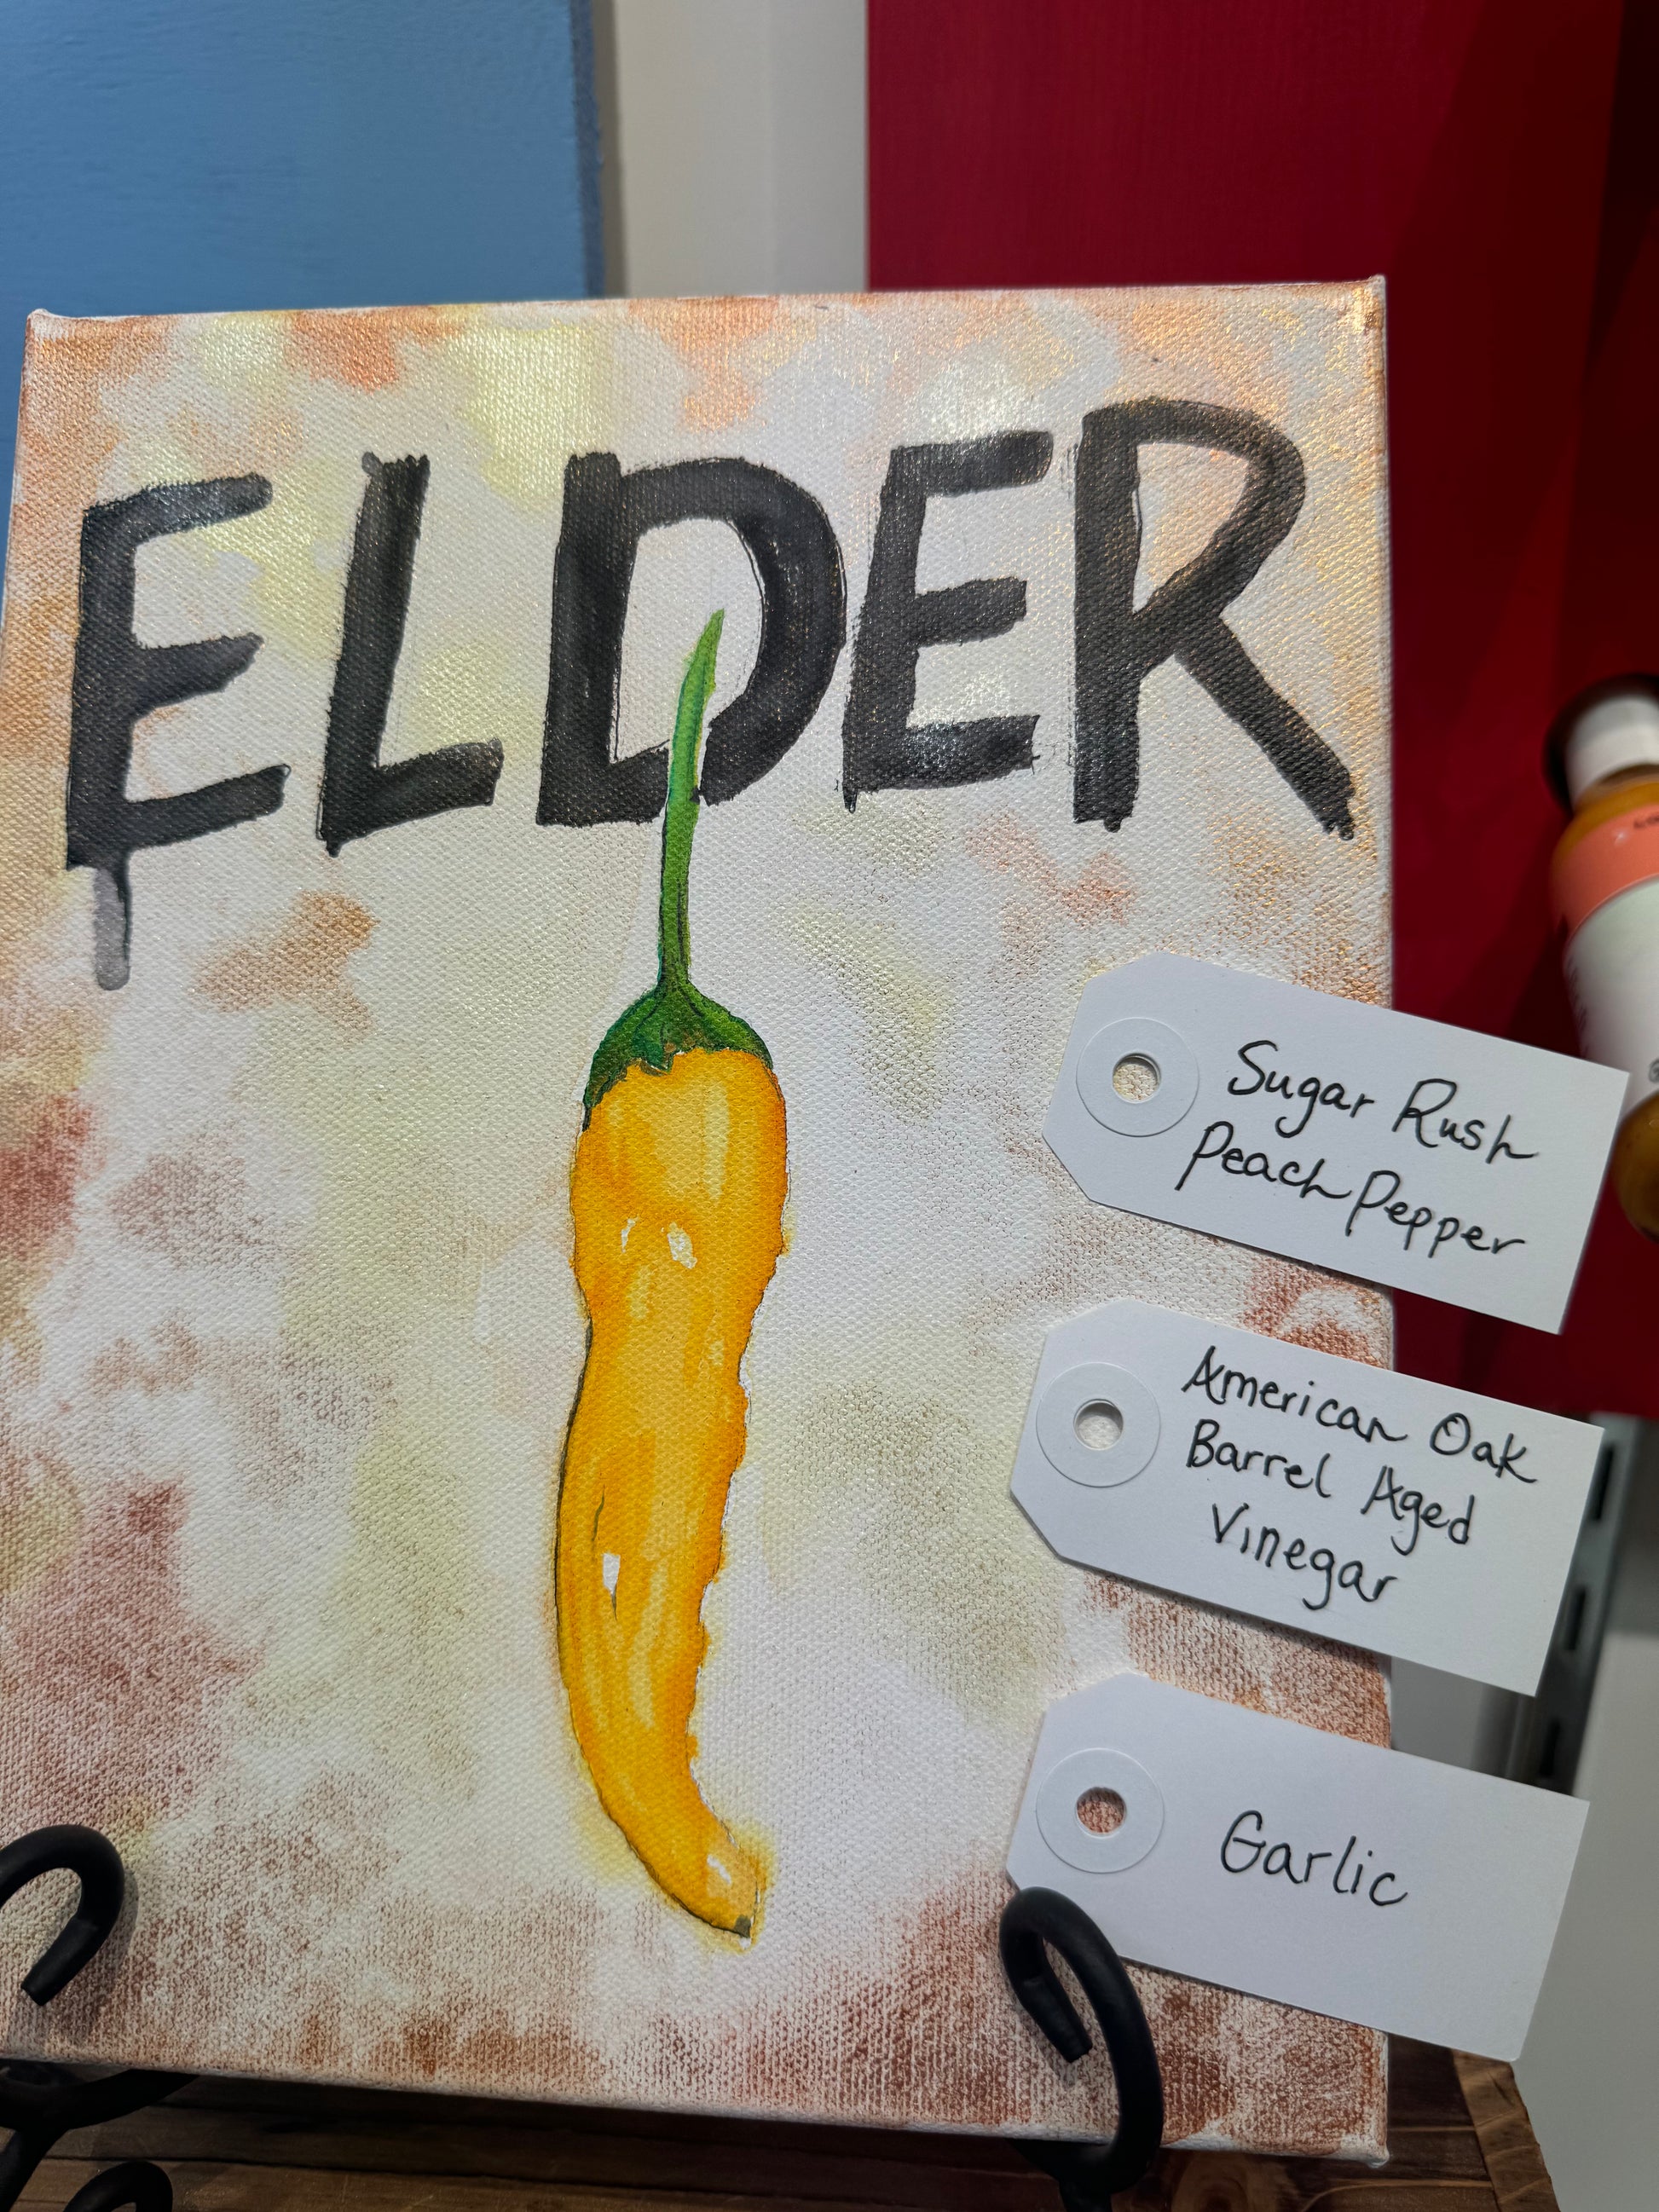 ELDER
Sugar Rush
Peach Pepper
American Oak
Barrel Aged
Vinegar
Garlic